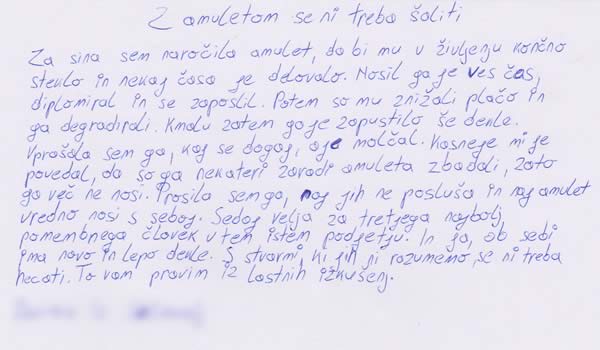 Z amuletom se ni treba šaliti
Za sina sem naročila amulet, da bi mu v življenju končno
steklo in nekaj časa je delovalo. Nosil ga je ves čas,
diplomiral in se zaposlil. Potem so mu znižali plačo in
ga degradirali. Kmalu zatem ga je zapustilo še dekle.
Vprašala sem ga, kaj se dogaj, a je molčal. Kasneje mi je
povedal, da so ga nekateri zaradi amuleta zbadali, zato
ga več ne nosi. Prosila sem ga, naj jih ne posluša in naj amulet
vredno nosi s seboj. Sedaj velja za tretjega najbolj
pomembnega človek v tem istem podjetju. In ja, ob sebi
ima novo in lepo dekle. S stvarmi, ki jih ni razumemo, se ni treba
hecati. To vam pravim iz lastnih izkušenj.